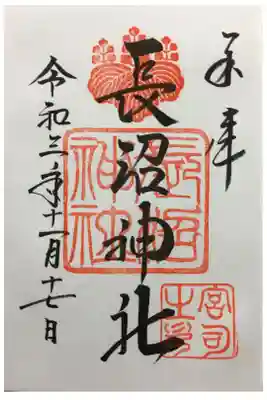 奉拝
長沼神社
令和三年十一月十七日
宮司之印